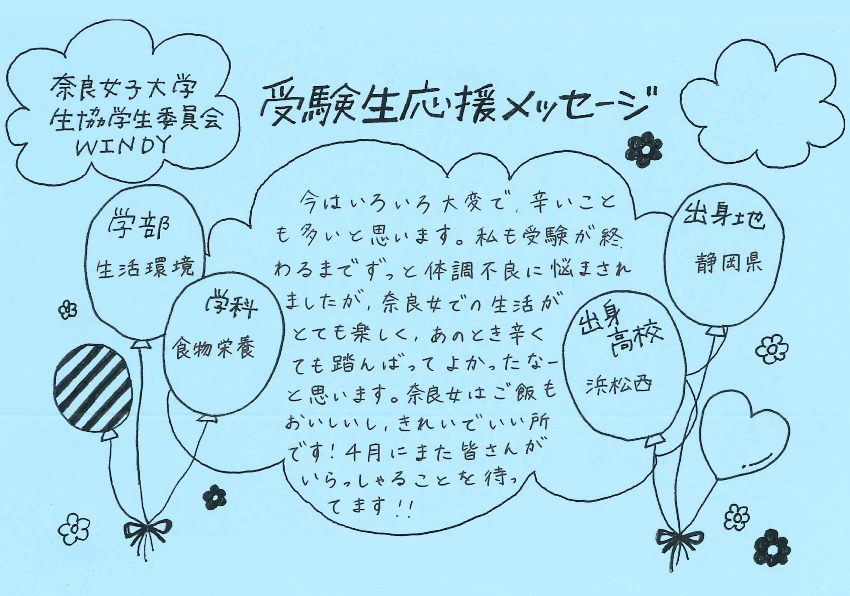 奈良女子大学
生協学生委員会
WINDY
受験生応援メッセージ
学部
生活環境
学科
食物栄養
今はいろいろ大変で、辛いこと
も多いと思います。私も受験が終
わるまでずっと体調不良に悩まされ
ましたが、奈良女での生活が
とても楽しく、あのとき辛く
ても踏んばってよかったなー
と思います。奈良女はご飯も
おいしいし、きれいでいい所
です！4月にまた皆さんが
いらっしゃることを待っ
てます!!
出身地
静岡県
出身
高校
浜松西